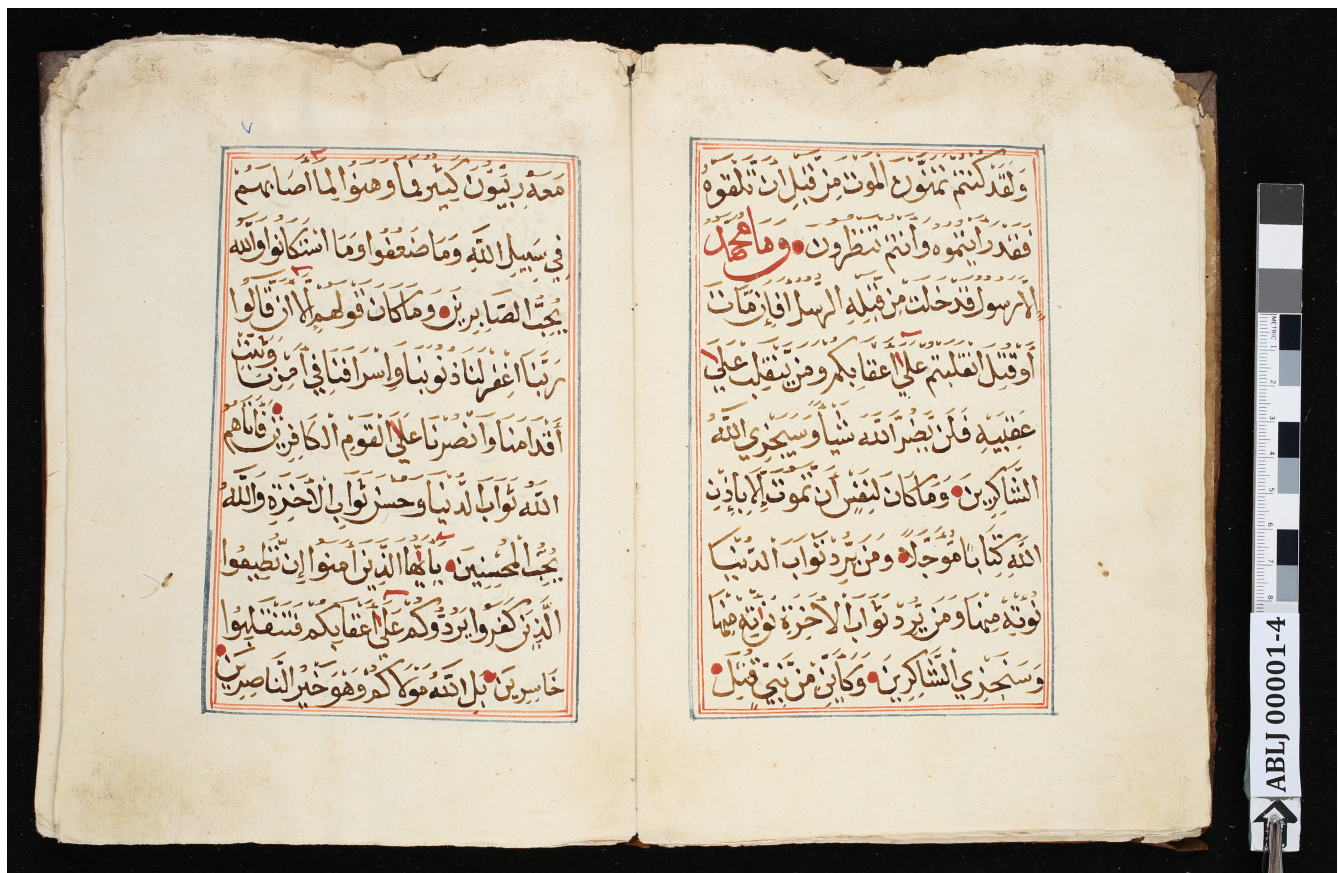 وَلَقَدْ كُنْتُمْ تَمَنَّوْنَ الْمَوْتَ مِنْ قَبْلِ أَنْ تَلْقَوْهُ
فَقَدْ رَأَيْتُمُوهُ وَأَنْتُمْ تَنْظُرُونَ وَمَا مُحَمَّدٌ
إِلَّا رَسُولٌ قَدْ خَلَتْ مِنْ قَبْلِهِ الرُّسُلُ أَفَإِنْ مَّاتَ
أَوْ قُتِلَ انْقَلَبْتُمْ عَلَى أَعْقَابِكُمْ وَمَنْ يَّنْقَلِبْ عَلَى
عَقِبَيْهِ فَلَنْ يَّضُرَّ اللَّهَ شَيْأً وَسَيَجْزِي اللَّهُ
الشَّاكِرِينَ وَمَا كَانَ لِنَفْسٍ أَنْ تَمُوتَ إِلَّا بِإِذْنِ
اللَّهِ كِتَابًا مُؤَجَّلًا وَمَنْ يُّرِدْ ثَوَابَ الدُّنْيَا
نُؤْتِهِ مِنْهَا وَمَنْ يُّرِدْ ثَوَابَ الْأَخِرَةِ نُؤْتِهِ مِنْهَا
وَسَنَجْزِي الشَّاكِرِينَ وَكَأَيِّنْ مِّنْ نَّبِيٍّ قُتِلَ
مَعَهُ رِبِّيُّونَ كَثِيرٌ فَمَا وَهَنُوا لِمَا أَصَابَهُمْ
فِي سَبِيلِ اللَّهِ وَمَا ضَعُفُوا وَمَا اسْتَكَانُوا وَاللَّهُ
يُحِبُّ الصَّابِرِينَ وَمَا كَانَ قَوْلَهُمْ إِلَّا أَنْ قَالُوا
رَبَّنَا اغْفِرْ لَنَا ذُنُوبَنَا وَإِسْرَافَنَا فِي أَمْرِنَا وَثَبِّتْ
أَقْدَامَنَا وَانْصُرْنَا عَلَى الْقَوْمِ الْكَافِرِينَ فَأَتَاهُمُ
اللَّهُ ثَوَابَ الدُّنْيَا وَحُسْنَ ثَوَابِ الْأَخِرَةِ وَاللَّهُ
يُحِبُّ الْمُحْسِنِينَ يَاأَيُّهَا الَّذِينَ أَمَنُوا إِنْ تُطِيعُوا
الَّذِينَ كَفَرُوا يَرُدُّوكُمْ عَلَى أَعْقَابِكُمْ فَتَنْقَلِبُوا
خَاسِرِينَ بَلِ اللَّهُ مَوْلَاكُمْ وَهُوَ خَيْرُ النَّاصِرِينَ
ABLJ 00001-4
METRIC 1 2 3 4 5 6 7 8